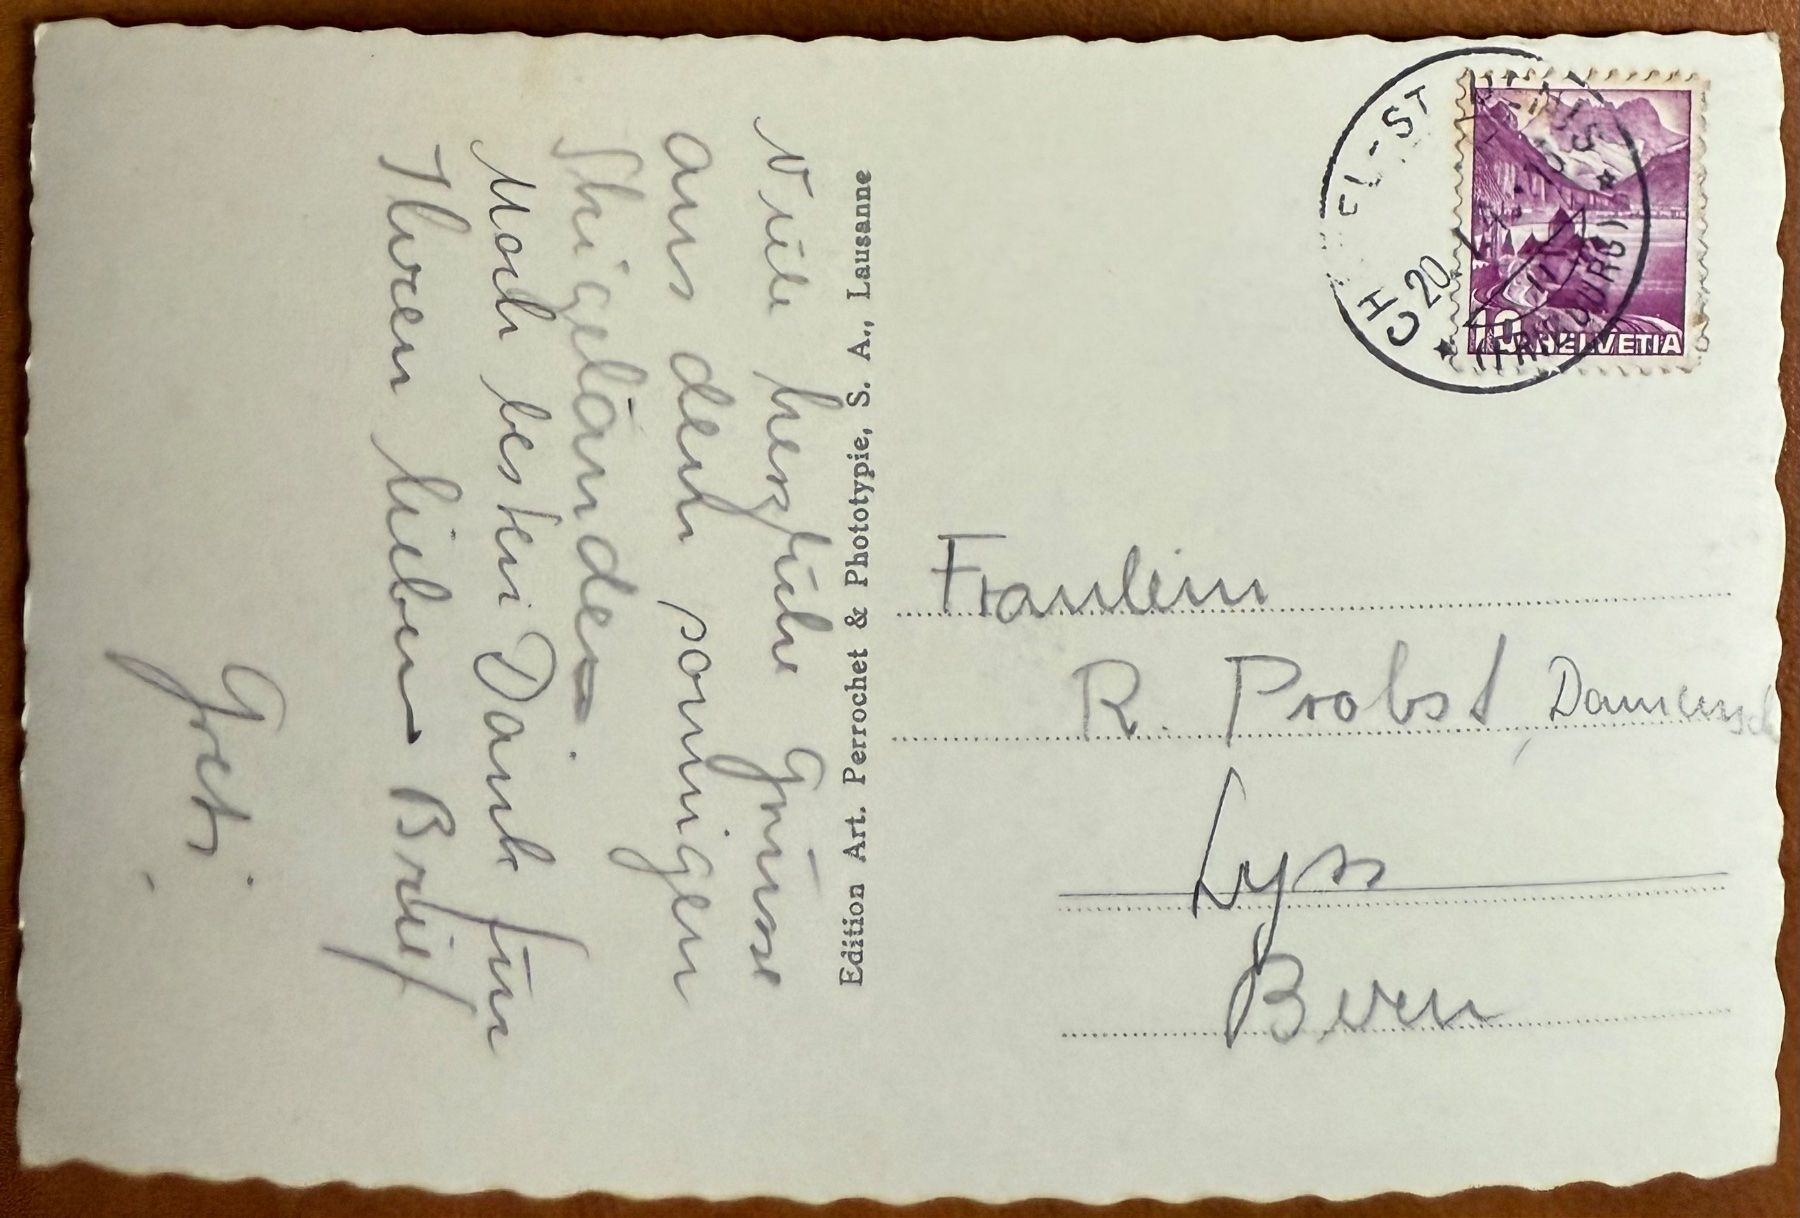 Viele herzliche Grüsse
aus dem sonnigen
Skigelände.
Noch besten Dank für
Ihren lieben Brief
Greti.
Edition Art. Perrochet & Phototypie, S. A., Lausanne
Fräulein
R. Probst, Damensch
Lyss
Bern
CH EL-ST DENIS
20
(FRIBOURG)
10 HELVETIA